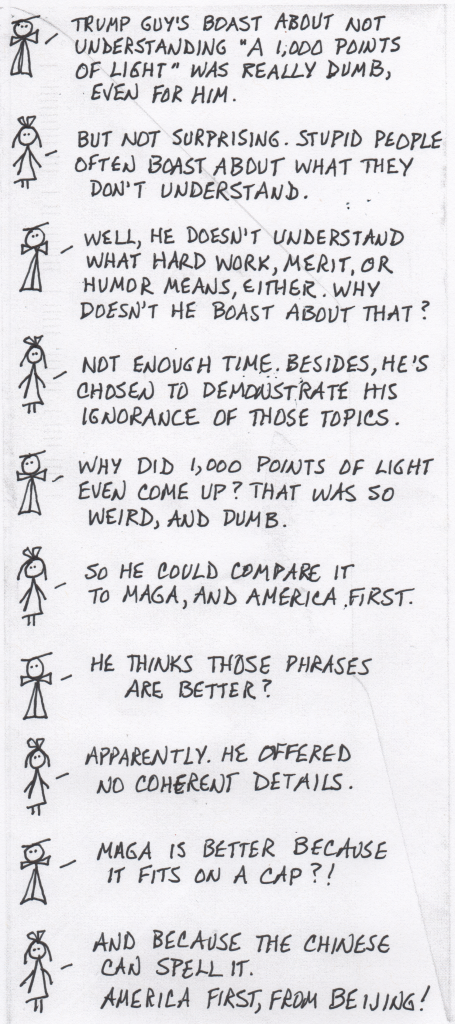 TRUMP GUY'S BOAST ABOUT NOT
UNDERSTANDING "A 1,000 POINTS
OF LIGHT" WAS REALLY DUMB,
EVEN FOR HIM.
BUT NOT SURPRISING. STUPID PEOPLE
OFTEN BOAST ABOUT WHAT THEY
DON'T UNDERSTAND.
WELL, HE DOESN'T UNDERSTAND
WHAT HARD WORK, MERIT, OR
HUMOR MEANS, EITHER. WHY
DOESN'T HE BOAST ABOUT THAT?
NOT ENOUGH TIME. BESIDES, HE'S
CHOSEN TO DEMONSTRATE HIS
IGNORANCE OF THOSE TOPICS.
WHY DID 1,000 POINTS OF LIGHT
EVEN COME UP? THAT WAS SO
WEIRD, AND DUMB.
SO HE COULD COMPARE IT
TO MAGA, AND AMERICA FIRST.
HE THINKS THOSE PHRASES
ARE BETTER?
APPARENTLY. HE OFFERED
NO COHERENT DETAILS.
MAGA IS BETTER BECAUSE
IT FITS ON A CAP?!
AND BECAUSE THE CHINESE
CAN SPELL IT.
AMERICA FIRST, FROM BEIJING!